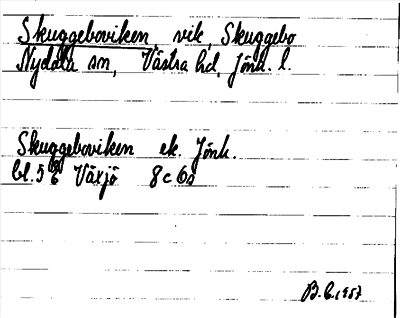 Skuggeboviken vik, Skuggebo
Nydala sn, Västra hd, Jönk. l.
Skuggeboviken ek. Jönk.
bl. 5 E Växjö 8c 6a
B.C. 1957